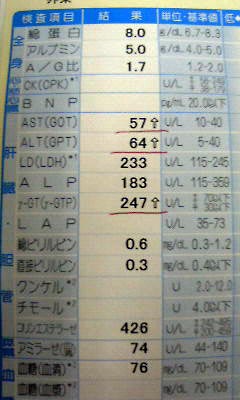 検査項目 結果 単位・基準値 低
総蛋白 8.0 g/dL 6.7-8.3
アルブミン 5.0 g/dL 4.0-5.0
A/G比 1.7 1.2-2.0
CK(CPK) U/L
BNP pg/mL 20.0以下
AST(GOT) 57⇧ U/L 10-40
ALT(GPT) 64⇧ U/L 5-40
LD(LDH) 233 U/L 115-245
ALP 183 U/L 115-359
γ-GT(γ-GTP) 247⇧ U/L
LAP U/L 35-73
総ビリルビン 0.6 mg/dL 0.3-1.2
直接ビリルビン 0.3 mg/dL 0.4以下
クンケル U 2.0-12.0
チモール U 4.0以下
コリンエステラーゼ 426 U/L
アミラーゼ 74 U/L 44-140
血糖(血清) 76 mg/dL 70-109
血糖(血漿) mg/dL 70-109